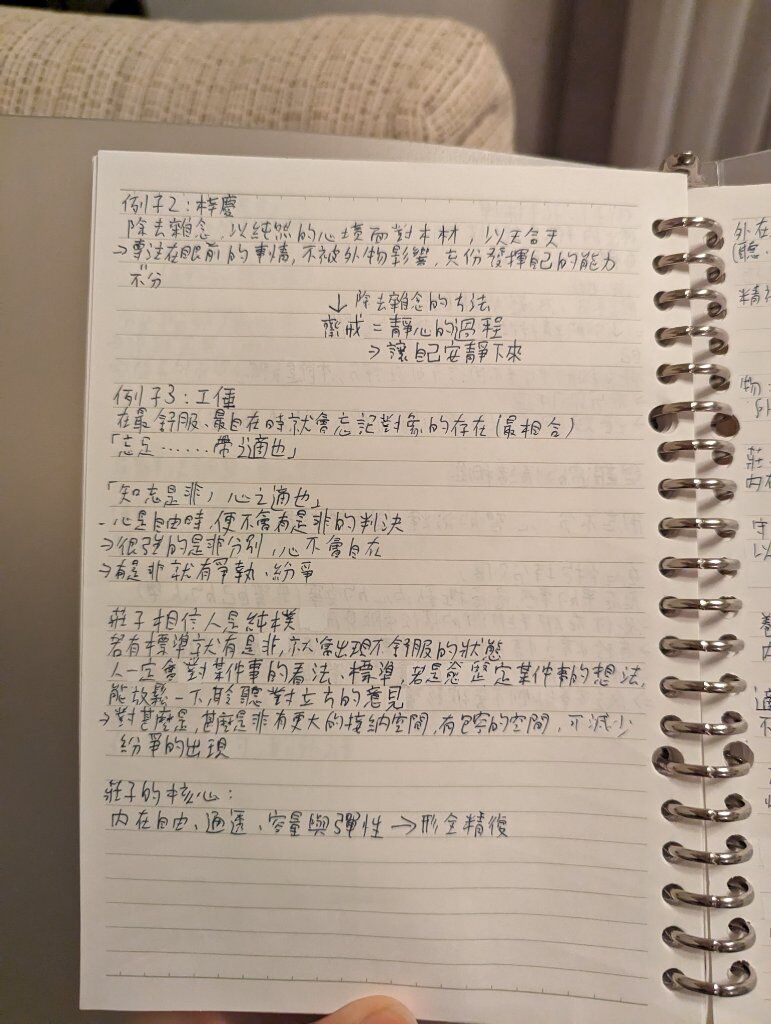 例子2：梓慶
除去雜念，以純然的心境面對木材，以天合天
→專注在眼前的事情，不被外物影響，充份發揮自己的能力
不分
↓除去雜念的方法
齋戒＝靜心的過程
→讓自己安靜下來
例子3：工倕
在最舒服、最自在時就會忘記對象的存在（最相合）
「忘足……帶之適也」
「知忘是非，心之適也」
-心是自由時，便不會有是非的判決
→很強的是非分別，心不會自在
→有是非就有爭執、紛爭
莊子相信人是純樸
若有標準就有是非，就會出現不舒服的狀態
人一定會對某件事的看法、標準，若是愈堅定某件事的想法，
能放鬆一下聆聽對立方的意見
→對甚麼是，甚麼是非有更大的接納空間，有包容的空間，可減少
紛爭的出現
莊子的核心：
內在自由、通透、容量與彈性→形全精復
外在
精神
物
莊子
內在
守
以
內
適
不